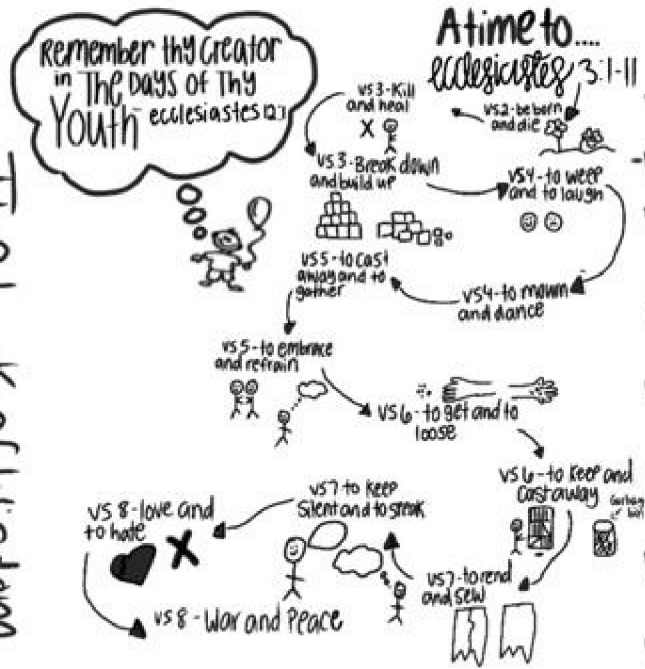 Remember thy Creator
in The Days of Thy
Youth - ecclesiastes 12:1
A time to....
ecclesiastes 3:1-11
vs 2- be born
and die
vs 3- Kill
and heal
X
vs 3- Break down
and build up
vs 4- to weep
and to laugh
vs 4- to mourn
and dance
vs 5- to cast
away and to
gather
vs 5- to embrace
and refrain
vs 6- to get and to
loose
vs 6- to keep and
cast away
vs 7- to rend
and sew
vs 7 to keep
Silent and to speak
vs 8 - love and
to hate
vs 8 - War and Peace